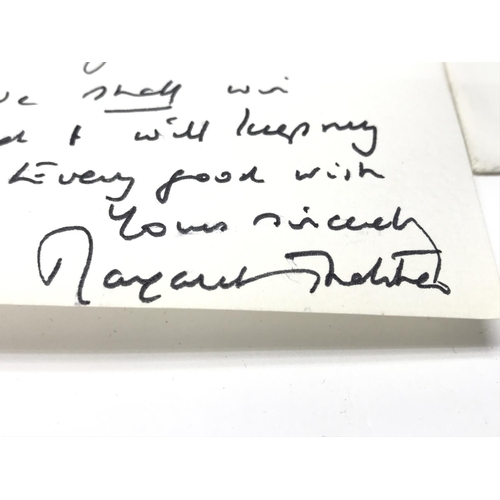 shall win
I will keep my
Every good wish
Yours sincerely
Margaret Thatcher